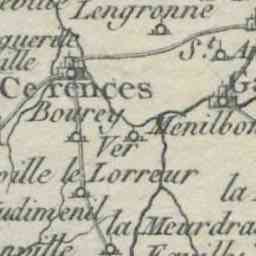 Lengronne
St.
Cerences
Bourey
Ver
Menilbon
ville le Lorreur
udimenil
la
la Meurdra
nville